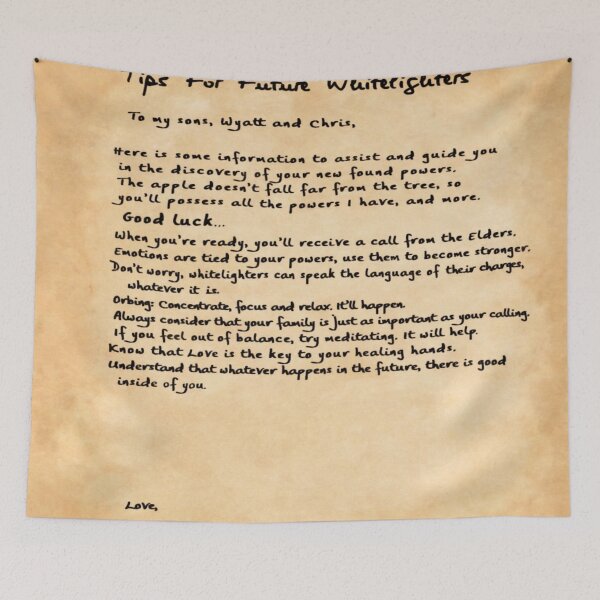 Tips For Future Whitelighters
To my sons, Wyatt and Chris,
Here is some information to assist and guide you
in the discovery of your new found powers.
The apple doesn't fall far from the tree, so
you'll possess all the powers I have, and more.
Good luck...
When you're ready, you'll receive a call from the Elders.
Emotions are tied to your powers, use them to become stronger.
Don't worry, whitelighters can speak the language of their charges,
whatever it is.
Orbing: Concentrate, focus and relax. It'll happen.
Always consider that your family is just as important as your calling.
If you feel out of balance, try meditating. It will help.
Know that Love is the key to your healing hands.
Understand that whatever happens in the future, there is good
inside of you.
Love,